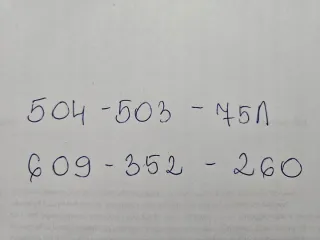 504 - 503 - 75Л
609 - 352 - 260